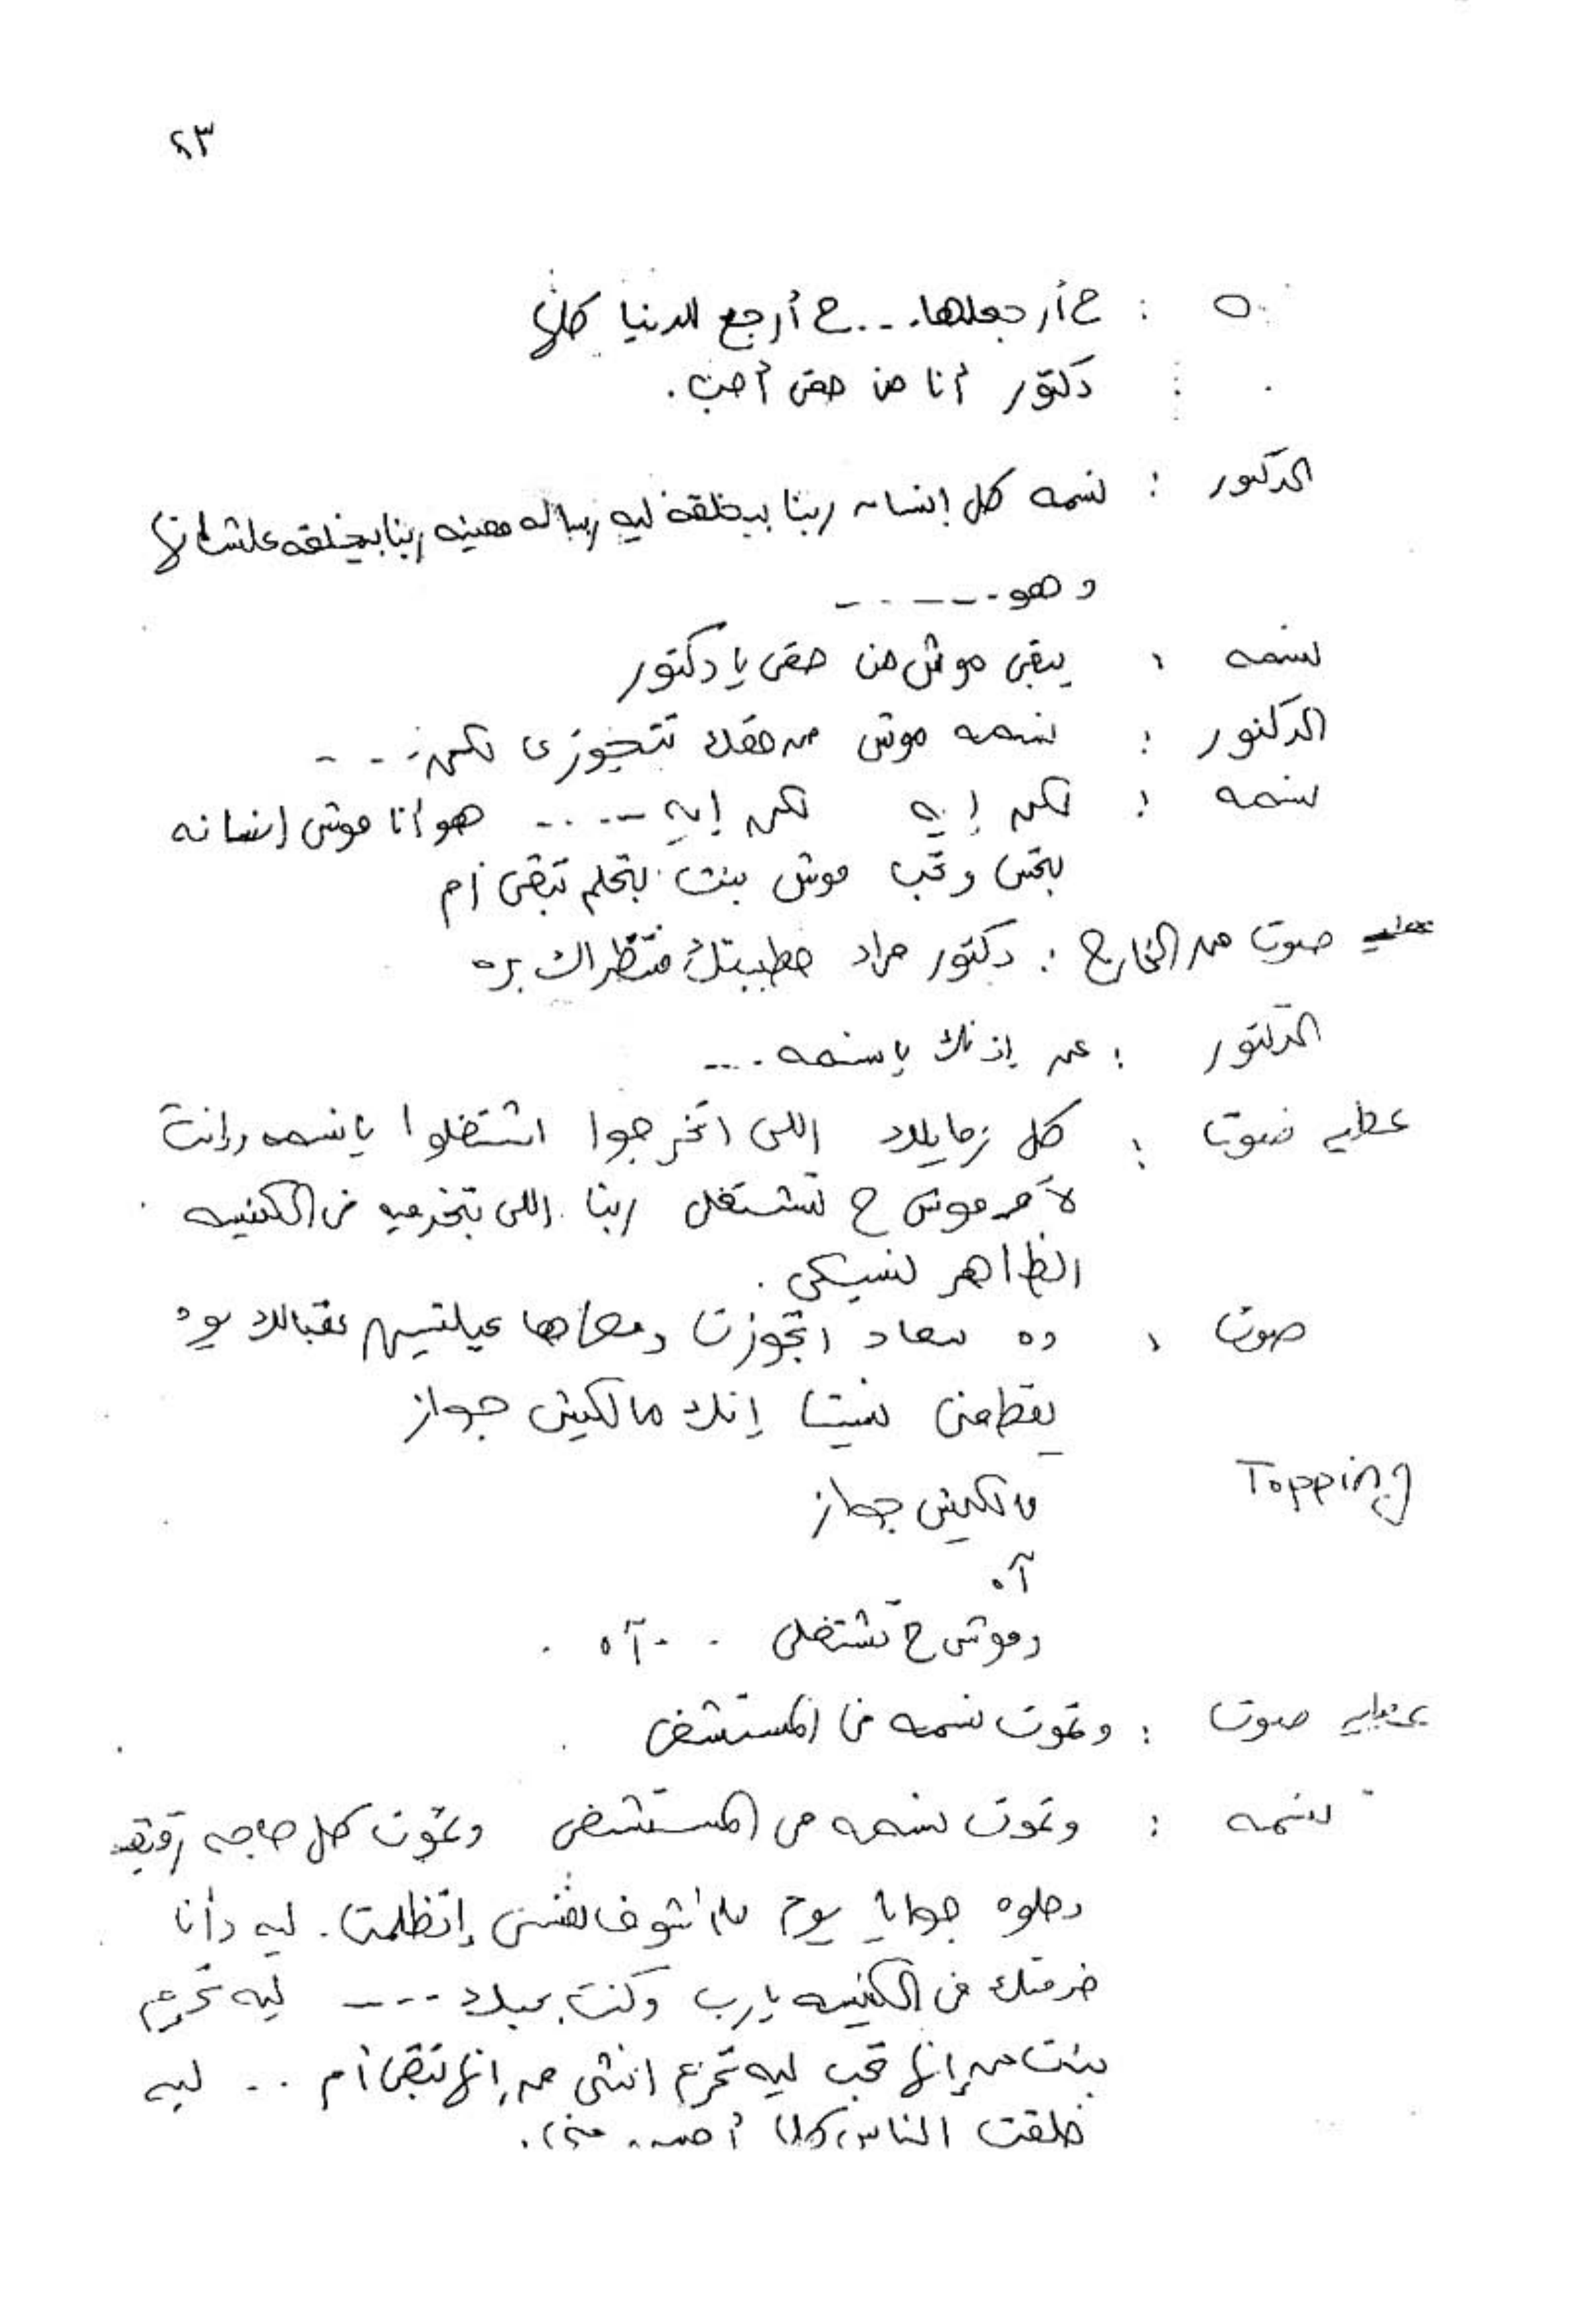 ٢٣
ح أرجعلها... ح أرجع للدنيا كلها
دكتور أنا من حقى أحب.
الدكتور : نسمه كل إنسان ربنا بيخلقه ليه رساله معينه ربنا بيخلقه علشانها
وهو......
نسمه : يبقى موش من حقى يا دكتور
الدكتور : نسمه موش من حقك تتجوزى لكن...
نسمه : لكن إيه لكن إيه .... هو أنا موش إنسانه
بتحس وتحب موش بنت بتحلم تبقى أم
صوت من الخارج : دكتور مراد خطيبتك منتظراك بره
الدكتور : عن إذنك يا نسمه....
صوت : كل زمايلك اللى اتخرجوا اشتغلوا يا نسمه وإنت
لأ موش ح تشتغلى ربنا اللى بتخدميه فى الكنيسه
الظاهر نسيكى.
صوت : ده سعاد اتجوزت ومعاها عيلتين عقبالك يوه
يقطعنى نسيت إنك مالكيش جواز
Topping مالكيش جواز
آه
وموش ح تشتغلى .. آه .
صوت : وتموت نسمه فى المستشفى
نسمه : وتموت نسمه فى المستشفى وتموت كل حاجه رقيقه
وحلوه جوايا يوم ما أشوف نفسى إتظلمت. ليه دأنا
خدمتك فى الكنيسه يارب وكنت بحبك .... ليه تحرم
بنت من إنها تحب ليه تحرم انثى من إنها تبقى أم .. ليه
خلقت الناس كلها أحسن منى.